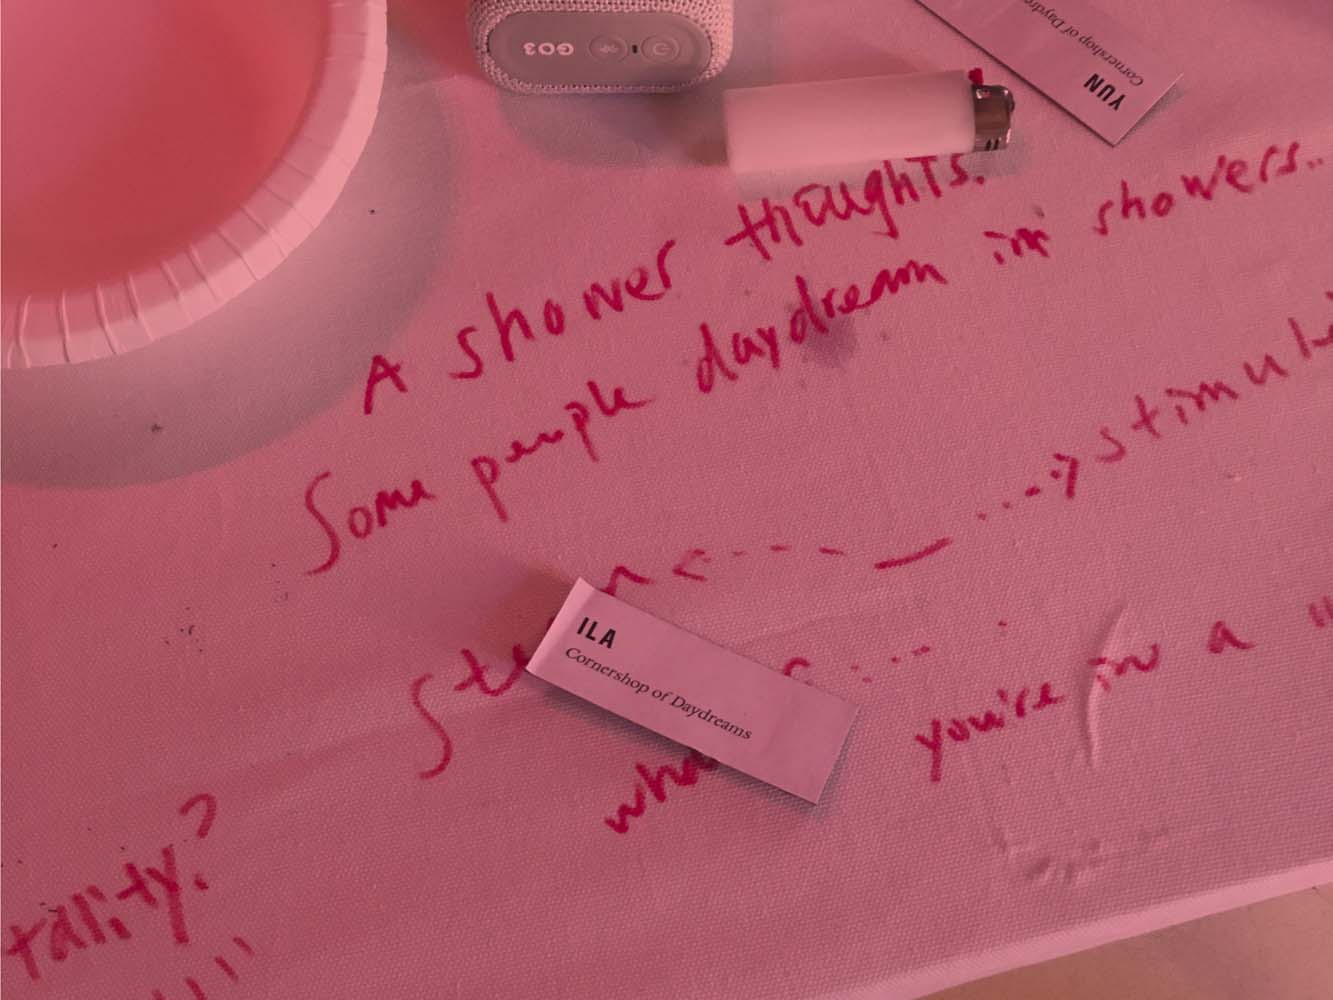 GO3
YUN
Cornershop of Daydre
A shower thoughts.
Some people daydream in showers..
stimul
ILA
Cornershop of Daydreams
you're in a "
tality?